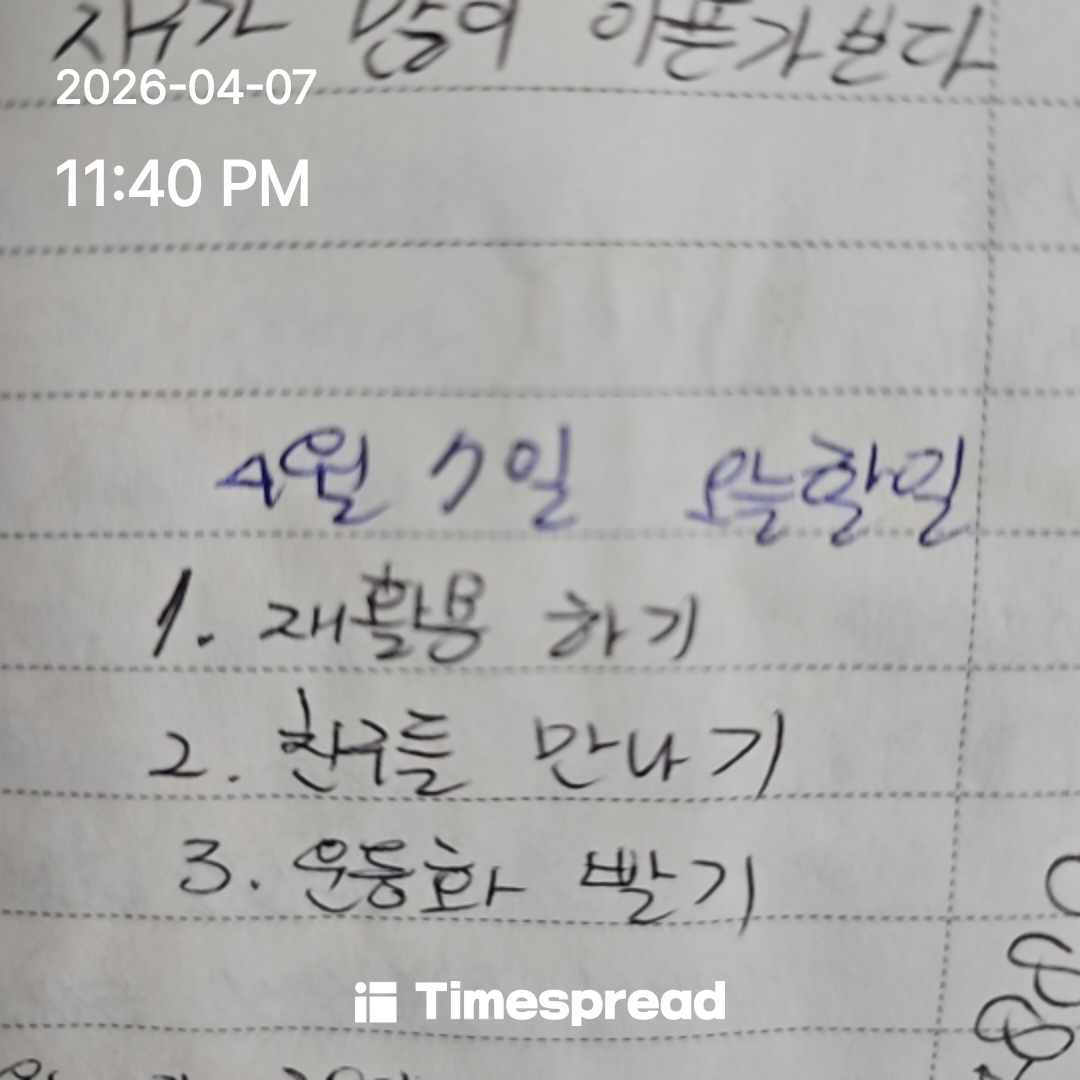 많이 아픈가보다
2026-04-07
11:40 PM
4월 7일 오늘할일
1. 재활용 하기
2. 친구들 만나기
3. 운동화 빨기
Timespread